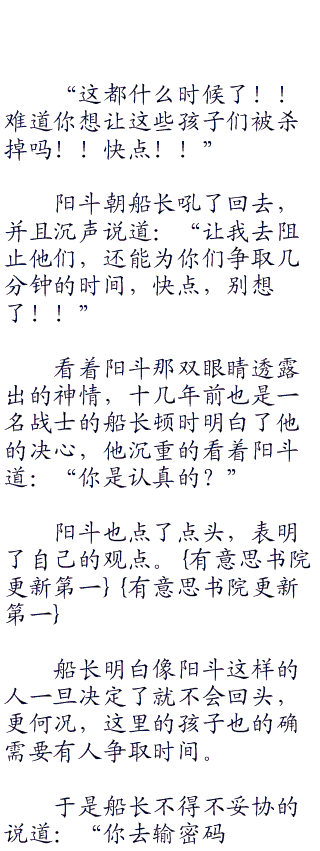 “这都什么时候了！！
难道你想让这些孩子们被杀
掉吗！！快点！！”
阳斗朝船长吼了回去，
并且沉声说道：“让我去阻
止他们，还能为你们争取几
分钟的时间，快点，别想
了！！”
看着阳斗那双眼睛透露
出的神情，十几年前也是一
名战士的船长顿时明白了他
的决心，他沉重的看着阳斗
道：“你是认真的？”
阳斗也点了点头，表明
了自己的观点。{有意思书院
更新第一}{有意思书院更新
第一}
船长明白像阳斗这样的
人一旦决定了就不会回头，
更何况，这里的孩子也的确
需要有人争取时间。
于是船长不得不妥协的
说道：“你去输密码